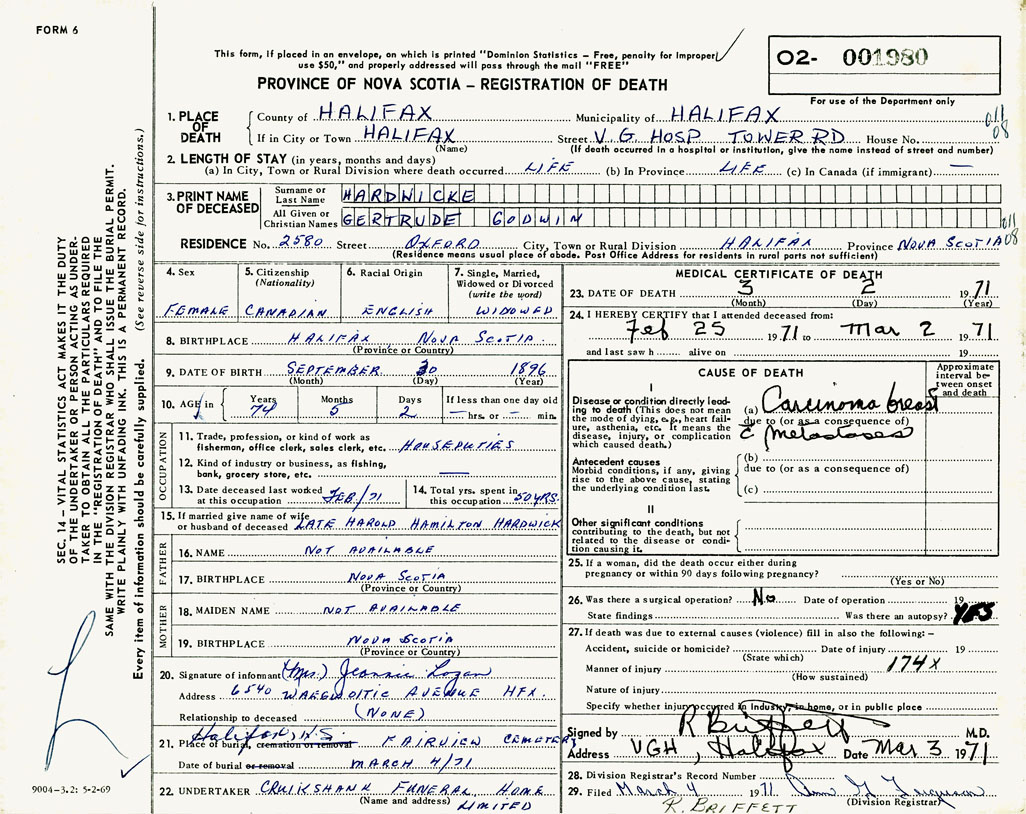 FORM 6
This form, if placed in an envelope, on which is printed "Dominion Statistics – Free, penalty for improper
use $50," and properly addressed will pass through the mail "FREE"
PROVINCE OF NOVA SCOTIA – REGISTRATION OF DEATH
02- 001980
For use of the Department only
1. PLACE OF DEATH
County of HALIFAX Municipality of HALIFAX
011
08
If in City or Town HALIFAX Street V.G. HOSP TOWER RD House No.
(Name) (If death occurred in a hospital or institution, give the name instead of street and number)
2. LENGTH OF STAY (in years, months and days)
(a) In City, Town or Rural Division where death occurred LIFE (b) In Province LIFE (c) In Canada (if immigrant) —
3. PRINT NAME OF DECEASED
Surname or Last Name HARDWICKE
All Given or Christian Names GERTRUDE GODWIN
011
08
RESIDENCE No. 2580 Street OXFORD City, Town or Rural Division HALIFAX Province NOVA SCOTIA
(Residence means usual place of abode. Post Office Address for residents in rural parts not sufficient)
4. Sex
FEMALE
5. Citizenship
(Nationality)
CANADIAN
6. Racial Origin
ENGLISH
7. Single, Married,
Widowed or Divorced
(write the word)
WIDOWED
8. BIRTHPLACE HALIFAX NOVA SCOTIA
(Province or Country)
9. DATE OF BIRTH SEPTEMBER 30 1896
(Month) (Day) (Year)
10. AGE in Years 74 Months 5 Days 2 If less than one day old
— hrs. or — min.
OCCUPATION
11. Trade, profession, or kind of work as
fisherman, office clerk, sales clerk, etc. HOUSEDUTIES
12. Kind of industry or business, as fishing,
bank, grocery store, etc. —
13. Date deceased last worked
at this occupation FEB/71
14. Total yrs. spent in
this occupation 50 YRS.
15. If married give name of wife
or husband of deceased LATE HAROLD HAMILTON HARDWICK
FATHER
16. NAME NOT AVAILABLE
17. BIRTHPLACE NOVA SCOTIA
(Province or Country)
MOTHER
18. MAIDEN NAME NOT AVAILABLE
19. BIRTHPLACE NOVA SCOTIA
(Province or Country)
20. Signature of informant (Mrs.) Jeannie Logan
Address 6540 AVENUE HFX
Relationship to deceased (NONE)
Halifax, N.S.
21. Place of burial, cremation or removal FAIRVIEW CEMETERY
Date of burial or removal MARCH 4/71
22. UNDERTAKER CRUIKSHANK FUNERAL HOME
(Name and address) LIMITED
MEDICAL CERTIFICATE OF DEATH
23. DATE OF DEATH 3 2 1971
(Month) (Day) (Year)
24. I HEREBY CERTIFY that I attended deceased from:
Feb 25 1971 to Mar 2 1971
and last saw h alive on 19
CAUSE OF DEATH
Approximate
interval be-
tween onset
and death
I
Disease or condition directly lead-
ing to death (This does not mean
the mode of dying, e.g., heart fail-
ure, asthenia, etc. It means the
disease, injury, or complication
which caused death.)
(a) Carcinoma breast
due to (or as a consequence of)
c̄ metastases
Antecedent causes
Morbid conditions, if any, giving
rise to the above cause, stating
the underlying condition last.
(b)
due to (or as a consequence of)
(c)
II
Other significant conditions
contributing to the death, but not
related to the disease or condi-
tion causing it.
25. If a woman, did the death occur either during
pregnancy or within 90 days following pregnancy?
(Yes or No)
26. Was there a surgical operation? No Date of operation 19
State findings Was there an autopsy? YES
27. If death was due to external causes (violence) fill in also the following:–
Accident, suicide or homicide? Date of injury 19
(State which)
174x
Manner of injury
(How sustained)
Nature of injury
Specify whether injury occurred in industry, in home, or in public place
Signed by R Briffett M.D.
Address VGH, Halifax Date Mar 3 1971
28. Division Registrar's Record Number
29. Filed March 4 1971
(Division Registrar)
R. BRIFFETT
SEC. 14 – VITAL STATISTICS ACT MAKES IT THE DUTY
OF THE UNDERTAKER OR PERSON ACTING AS UNDER-
TAKER TO OBTAIN ALL THE PARTICULARS REQUIRED
IN THE "REGISTRATION OF DEATH" AND TO FILE THE
SAME WITH THE DIVISION REGISTRAR WHO SHALL ISSUE THE BURIAL PERMIT.
WRITE PLAINLY WITH UNFADING INK. THIS IS A PERMANENT RECORD.
Every item of information should be carefully supplied. (See reverse side for instructions.)
9004-3.2: 5-2-69